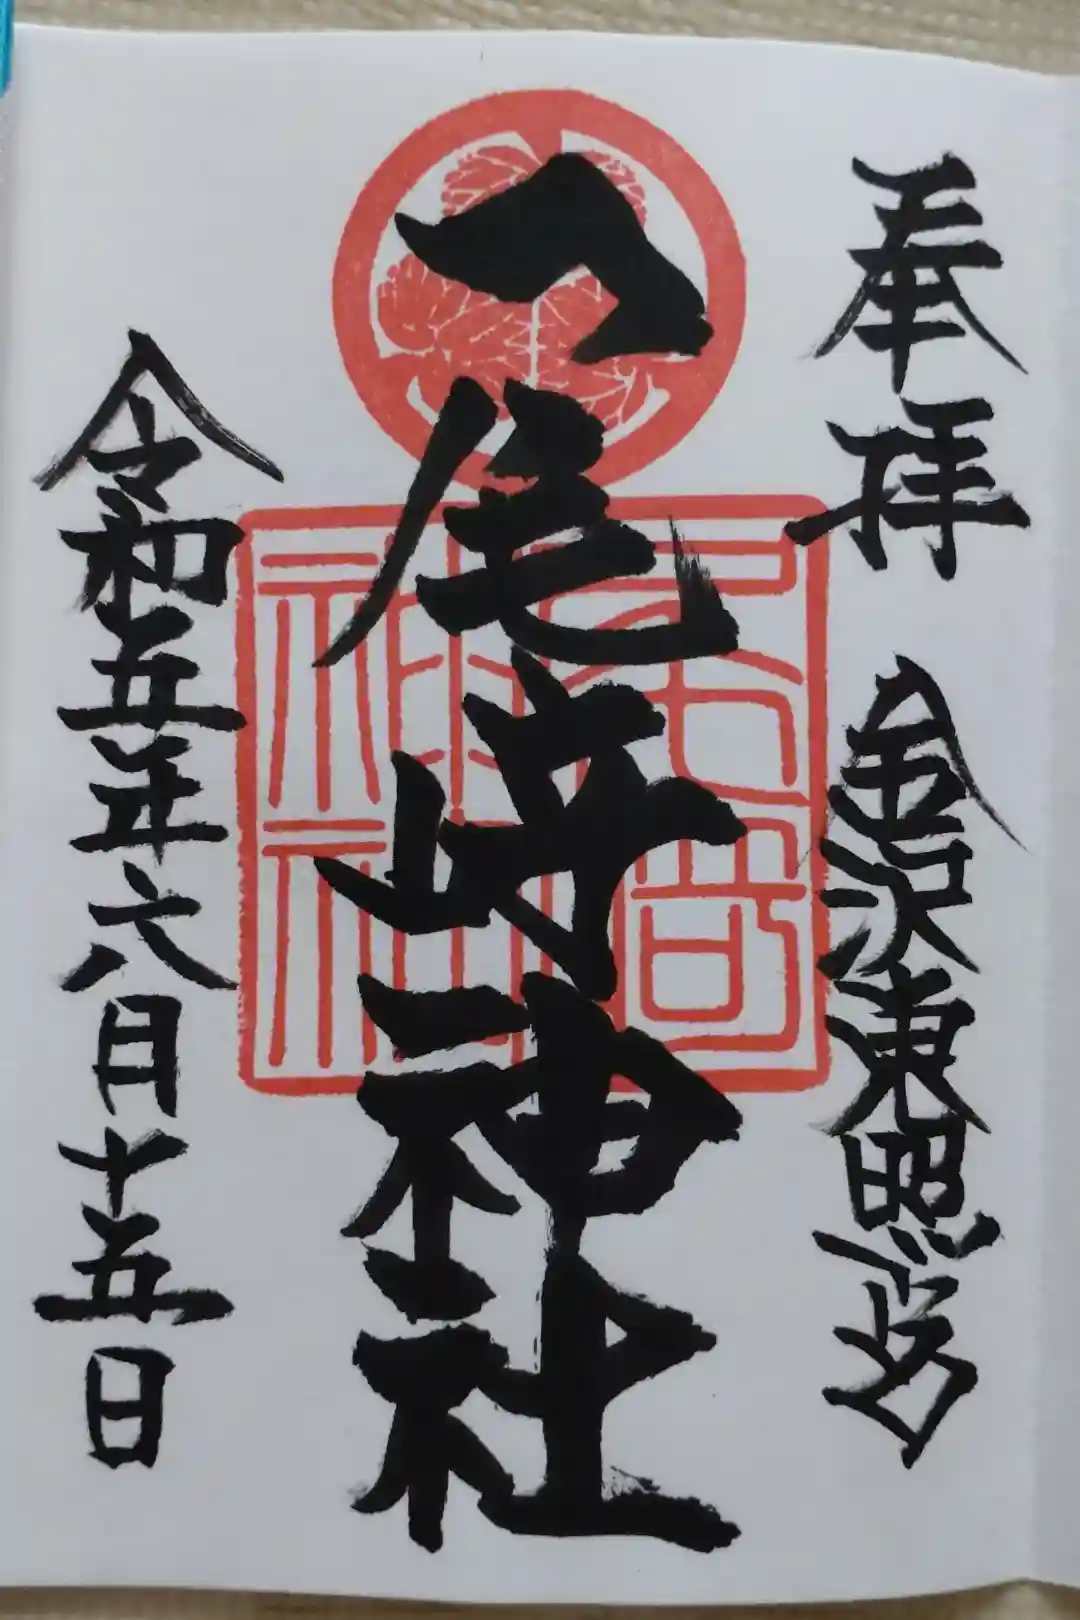 奉拝　金沢東照宮
尾崎神社
尾崎神社
令和五年六月十五日